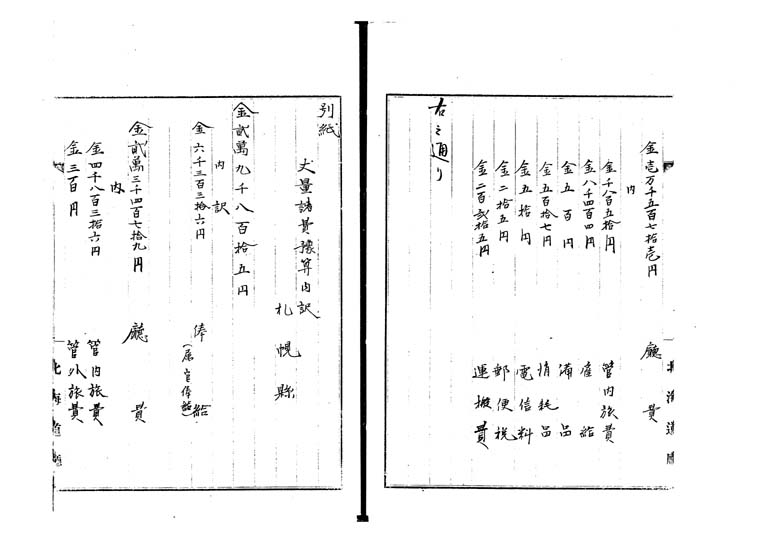 金壱万千五百七拾壱円　廳費
内
金千八百五拾円　管内旅費
金八千四百四円　雇給
金五百円　備品
金五百拾七円　消耗品
金五拾円　電信料
金二拾五円　郵便税
金二百弐拾五円　運搬費
右之通り
別紙
丈量諸費豫算内訳
札幌縣
金貳萬九千八百拾五円
内訳
金六千三百三拾六円　俸給
(属官俸給)
金貳萬三千四百七拾九円　廳費
内
金四千八百三拾六円　管内旅費
金三百円　管外旅費
北海道廳